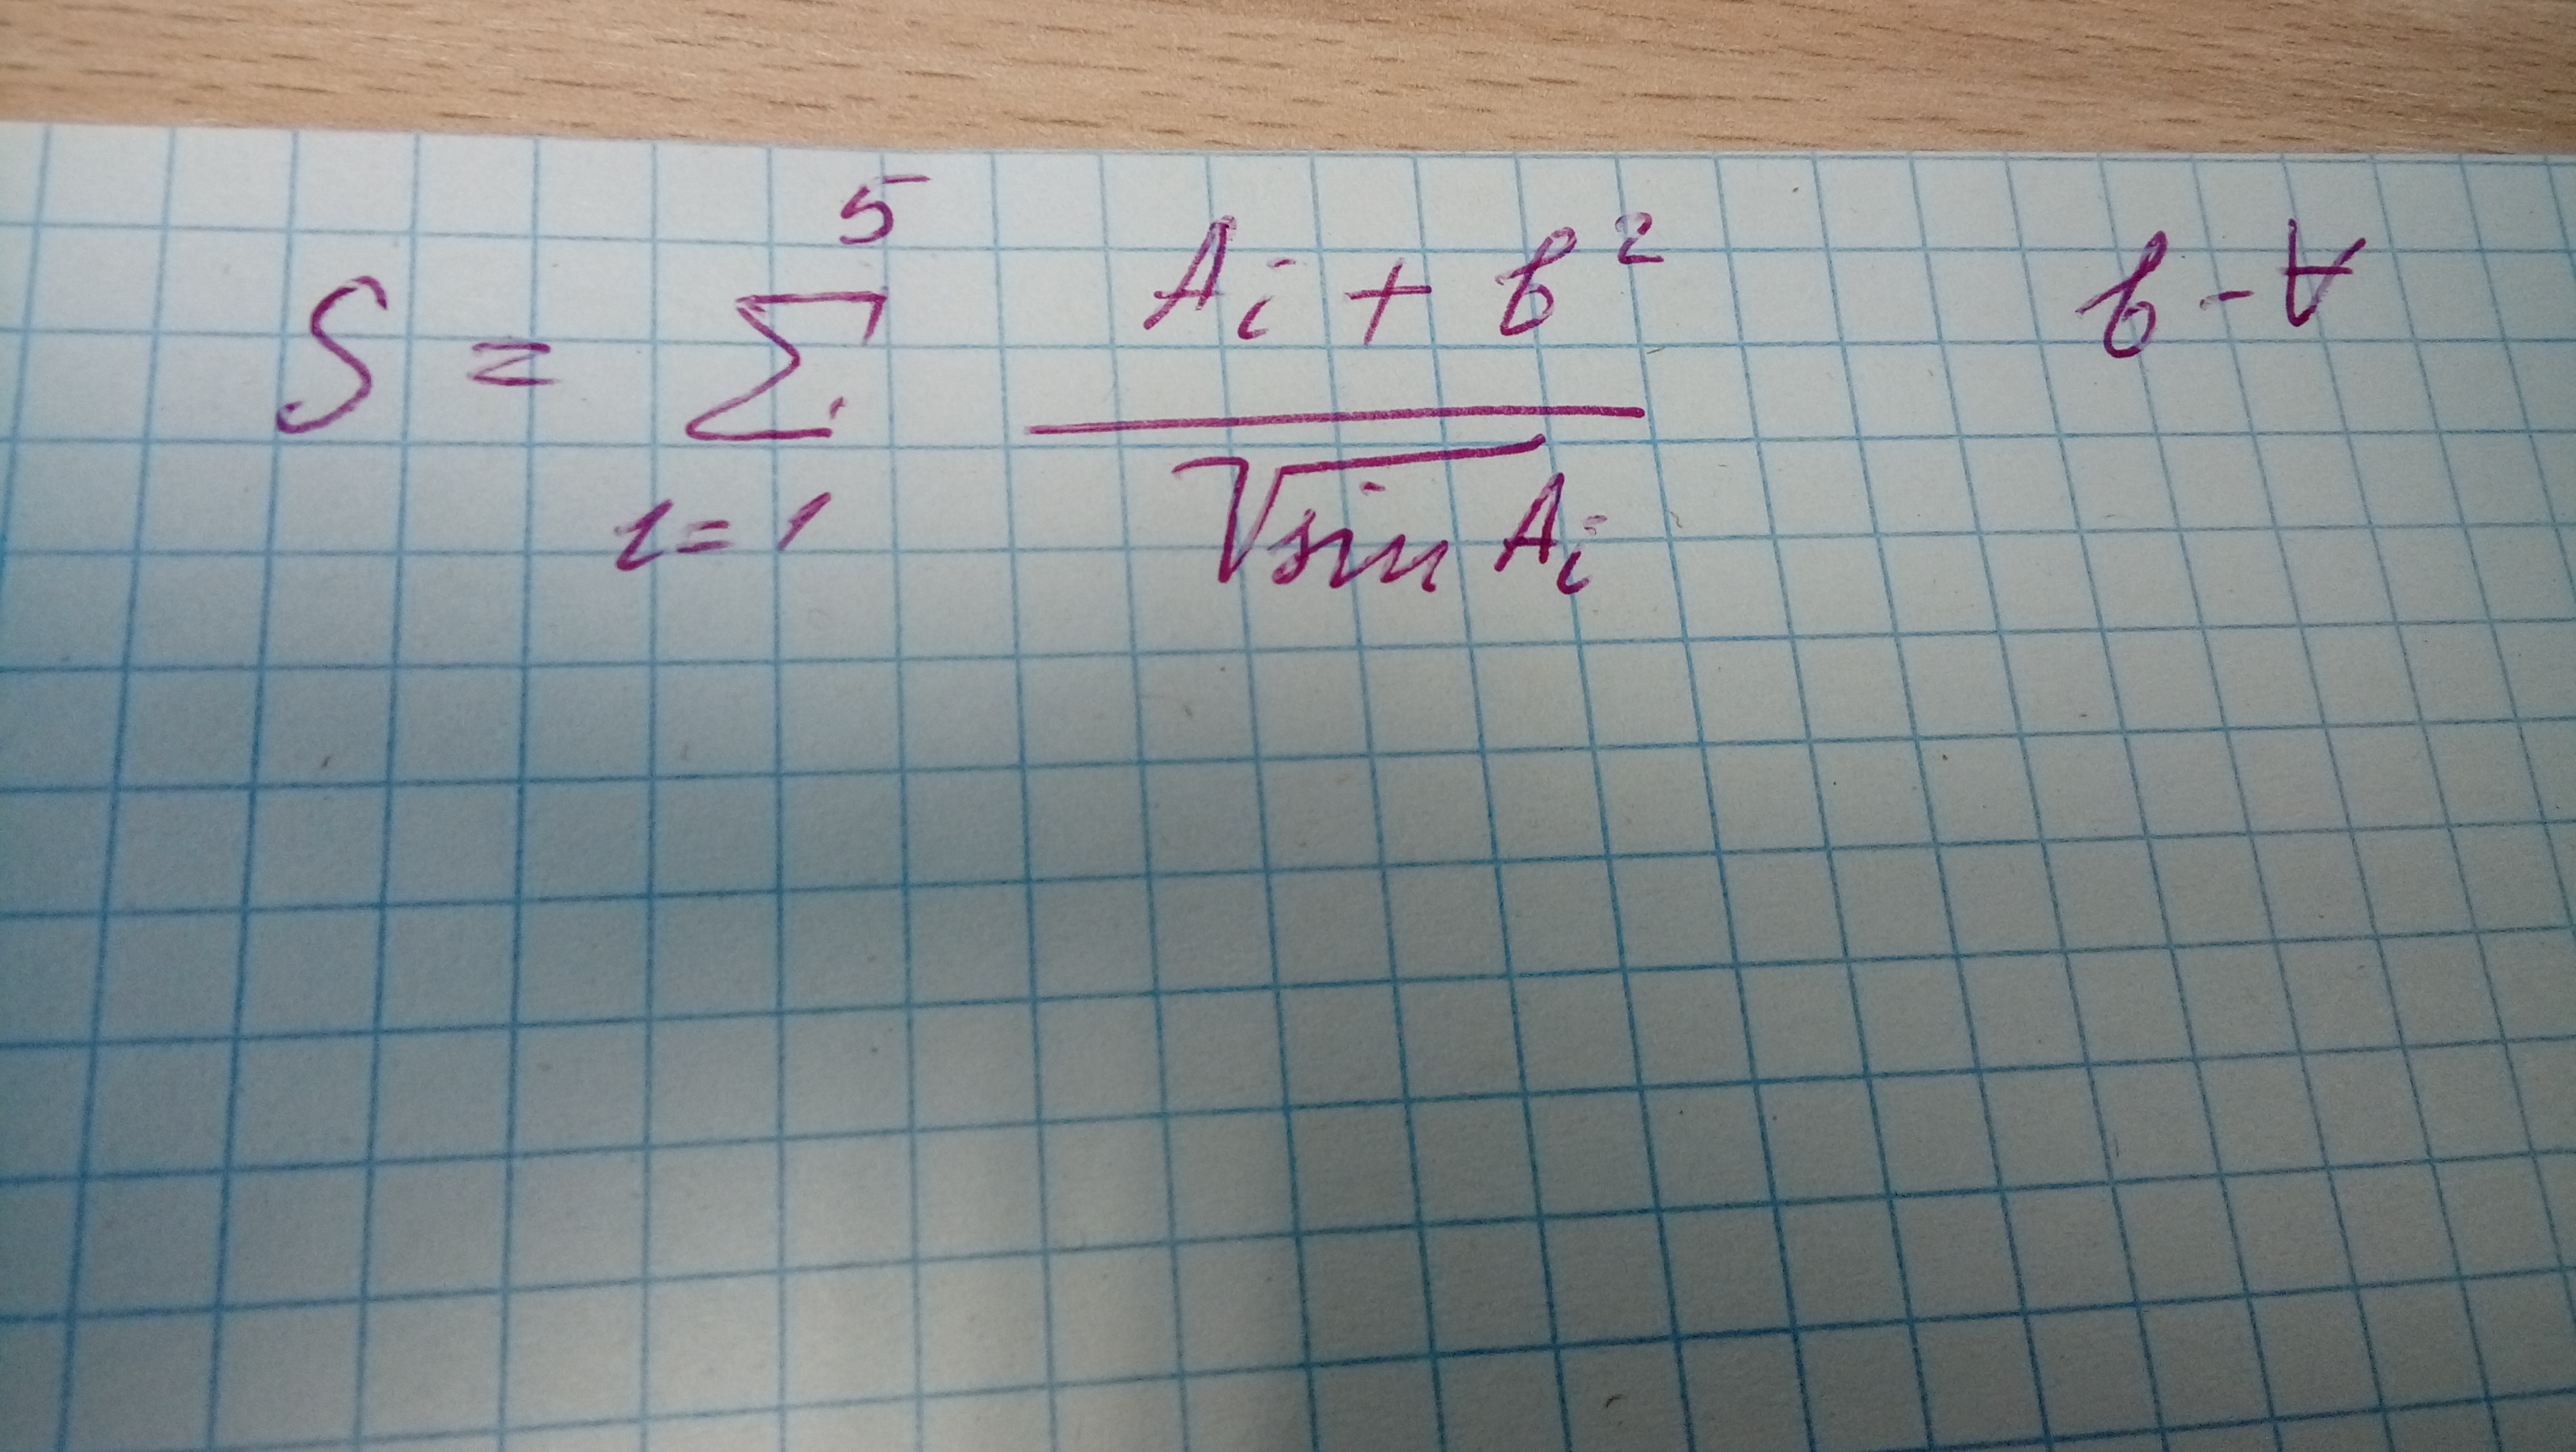 S = \sum_{i=1}^{5} \frac{A_i + b^2}{\sqrt{\sin A_i}} b - ∀